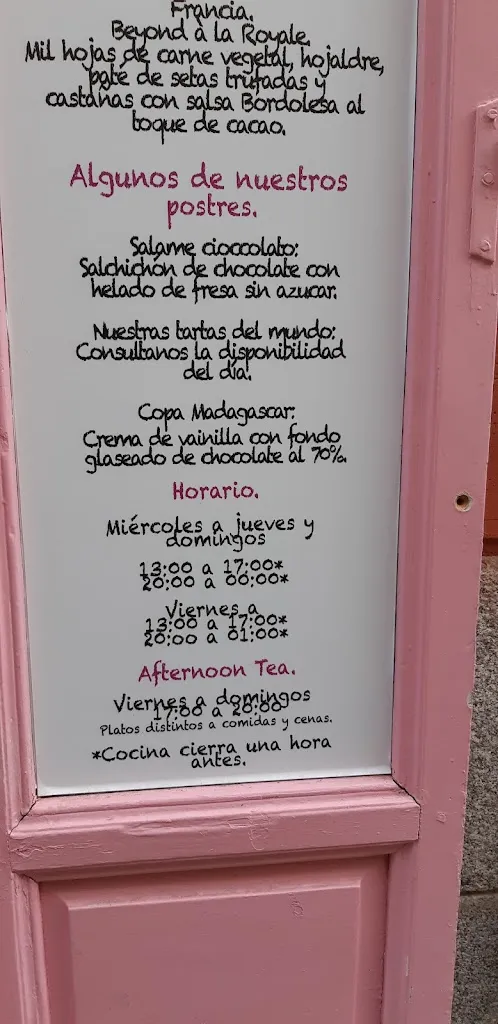 Francia.
Beyond à la Royale.
Mil hojas de carne vegetal, hojaldre,
paté de setas trufadas y
castañas con salsa Bordolesa al
toque de cacao.
Algunos de nuestros
postres.
Salame cioccolato:
Salchichón de chocolate con
helado de fresa sin azucar.
Nuestras tartas del mundo:
Consultanos la disponibilidad
del día.
Copa Madagascar:
Crema de vainilla con fondo
glaseado de chocolate al 70%.
Horario.
Miércoles a jueves y
domingos
13:00 a 17:00*
20:00 a 00:00*
Viernes a
13:00 a 17:00*
20:00 a 01:00*
Afternoon Tea.
Viernes a domingos
17:00 a 20:00
Platos distintos a comidas y cenas.
*Cocina cierra una hora
antes.